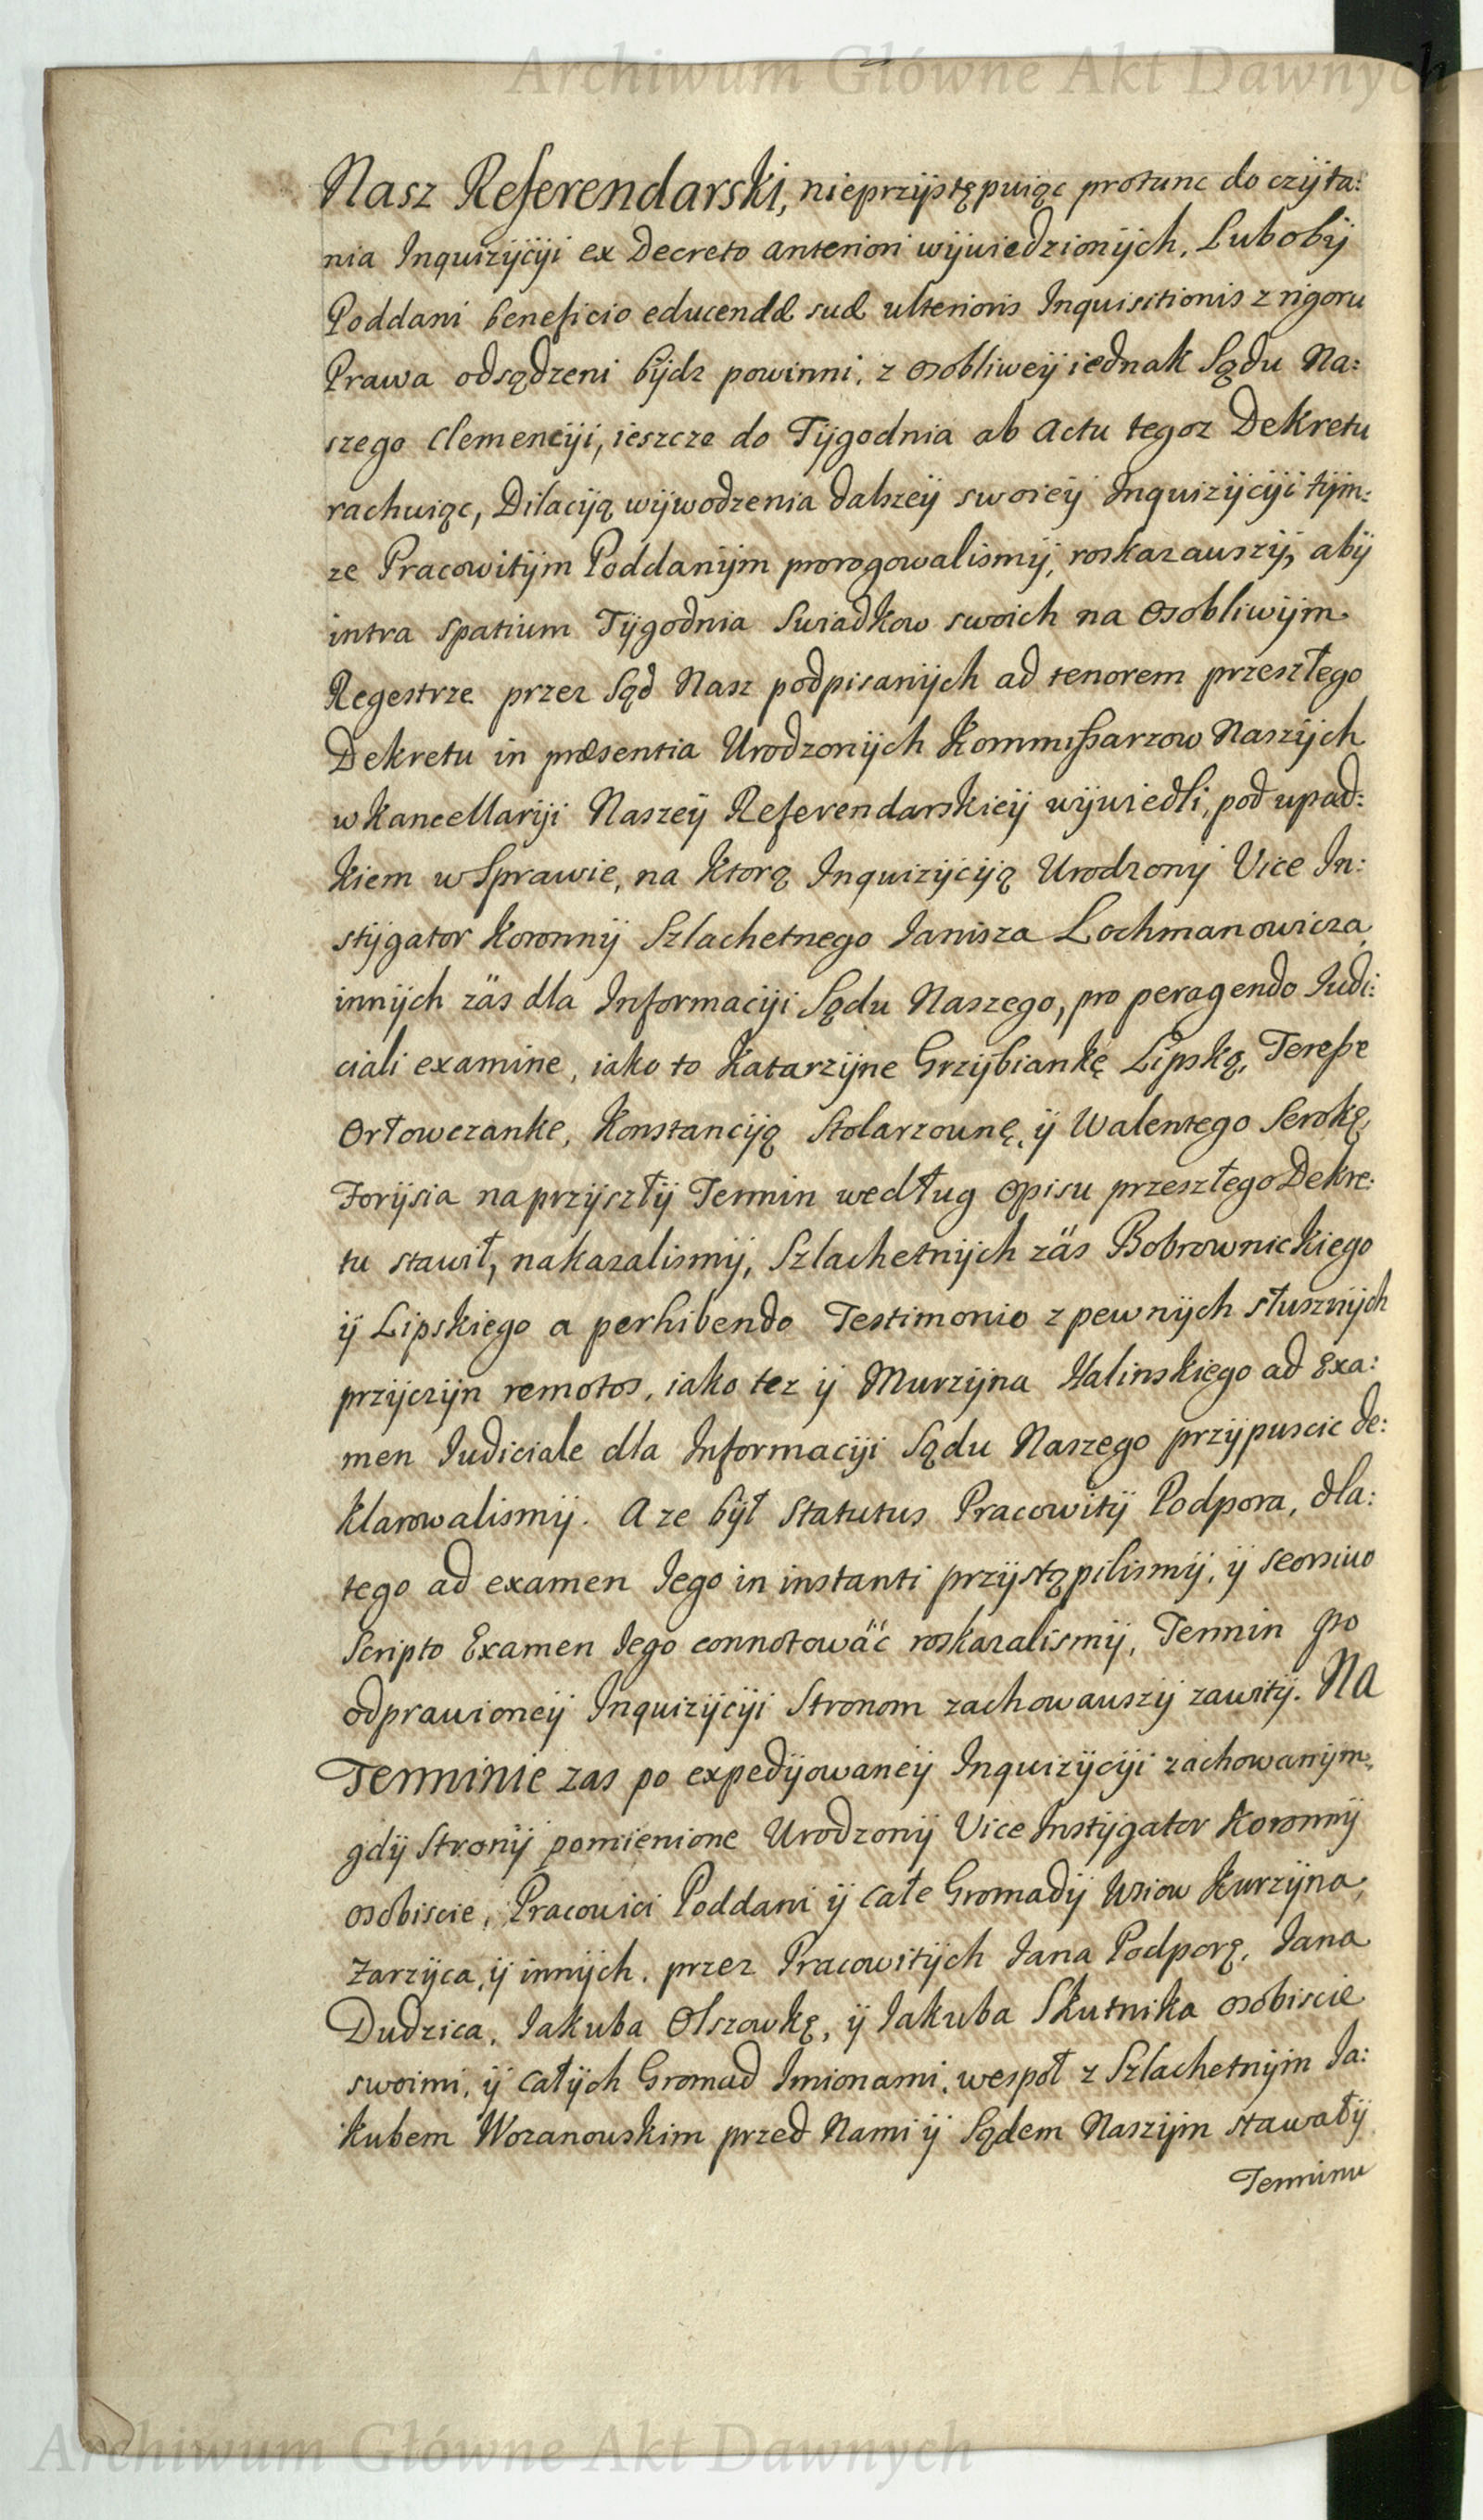 Archiwum Główne Akt Dawnych
Nasz Referendarski, nieprzijstępuiąc protunc do czijta:
nia Inquizijciji ex Decreto anteriori wijwiedzionijch, Lubobij
Poddani beneficio educendæ suæ ulterioris Inquisitionis z rigoru
Prawa odsądzeni bijdz powinni, z osobliweij iednak Sądu Na:
szego Clemenciji, ieszcze do Tijgodnia ab actu tegoz Dekretu
rachuiąc, Dilaciją wijwodzenia dalszeij swoieij Inquizijciji tijm:
ze Pracowitijm Poddanijm prorogowalismij, roskazauszij, abij
intra spatium Tijgodnia Swiadkow swoich na osobliwijm
Regestrze przez Sąd Nasz podpisanijch ad tenorem przeszłego
Dekretu in præsentia Urodzonijch Kommissarzow Naszijch
w Kancellariji Naszeij Referendarskieij wijwiedli, pod upad:
kiem w Sprawie, na ktorą Inquizijciją Urodzonij Vice In:
stijgator Koronnij Szlachetnego Janisza Lochmanowicza,
innijch zäs dla Informaciji Sądu Naszego, pro peragendo Iudi:
ciali examine, iako to Katarzijne Grzijbiankę Lipską, Teresse
Orłowczanke, Konstanciją Stolarzounę, ij Walentego Serokę,
Forijsia na przijszłij Termin według opisu przeszłego Dekre:
tu stawił, nakazalismij, Szlachetnijch zäs Bobrownickiego
ij Lipskiego a perhibendo Testimonio z pewnijch słusznijch
przijczijn remotos, iako tez ij Murzijna Halinskiego ad Exa:
men Iudiciale dla Informaciji Sądu Naszego przijpuscic de:
klarowalismij. A ze bijł Statutus Pracowitij Podpora, dla:
tego ad examen Iego in instanti przijstąpilismij, ij seorsiuo
Scripto Examen Iego connotowäć roskazalismij, Termin po
odprawioneij Inquizijciji Stronom zachowauszij zawitij. Na
Terminie zas po expedijowaneij Inquizijciji zachowanijm,
gdij Stronij pomienione Urodzonij Vice Instijgator Koronnij
osobiscie, Pracowici Poddani ij całe Gromadij Wsiow Kurzijna,
Zarzijca, ij innijch, przez Pracowitijch Jana Podporę, Jana
Dudzica, Jakuba Olszowkę, ij Jakuba Skutnika osobiscie
swoimi, ij całijch Gromad Imionami, wespoł z Szlachetnijm Ja:
kubem Wozanouskim przed Nami ij Sądem Naszijm stawałij
Terminu
Archiwum Główne Akt Dawnych